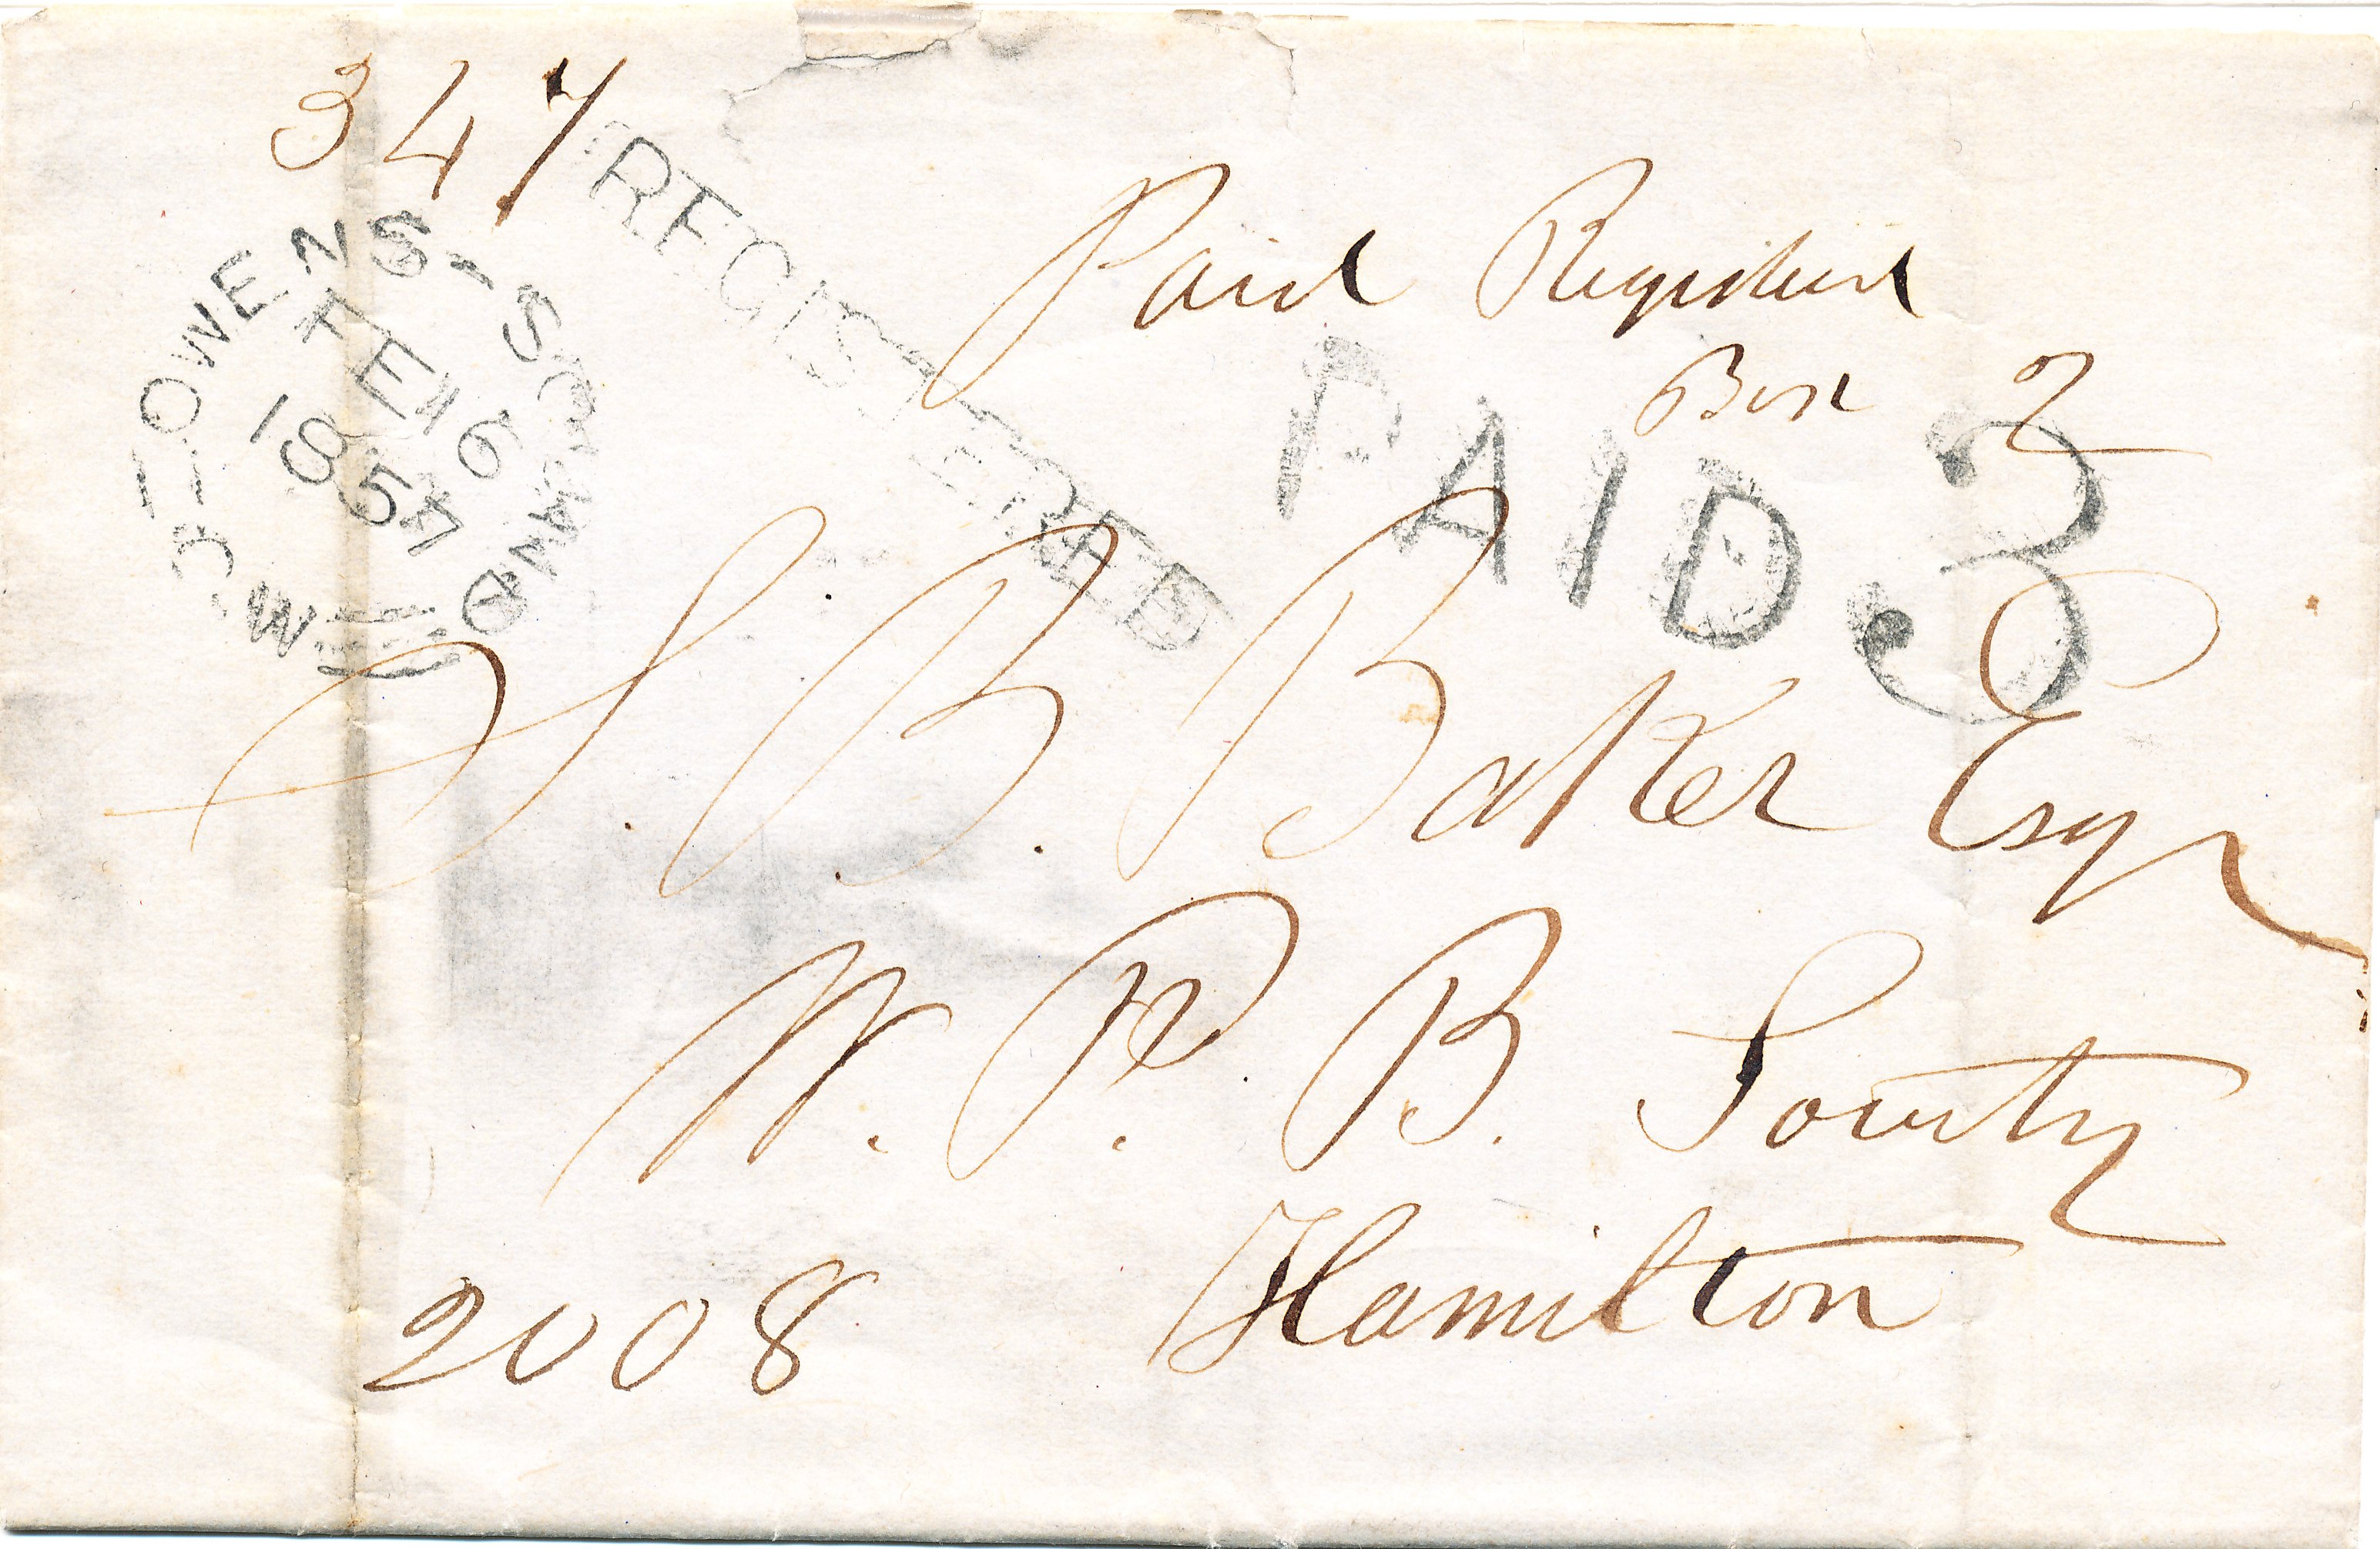 347
OWENS-SOUND
FE 16
1857
C-W
REGISTERED
Paid Registered
Box 2
PAID 3
H. B. Baker Esqr
W. P. B. Society
Hamilton
2008